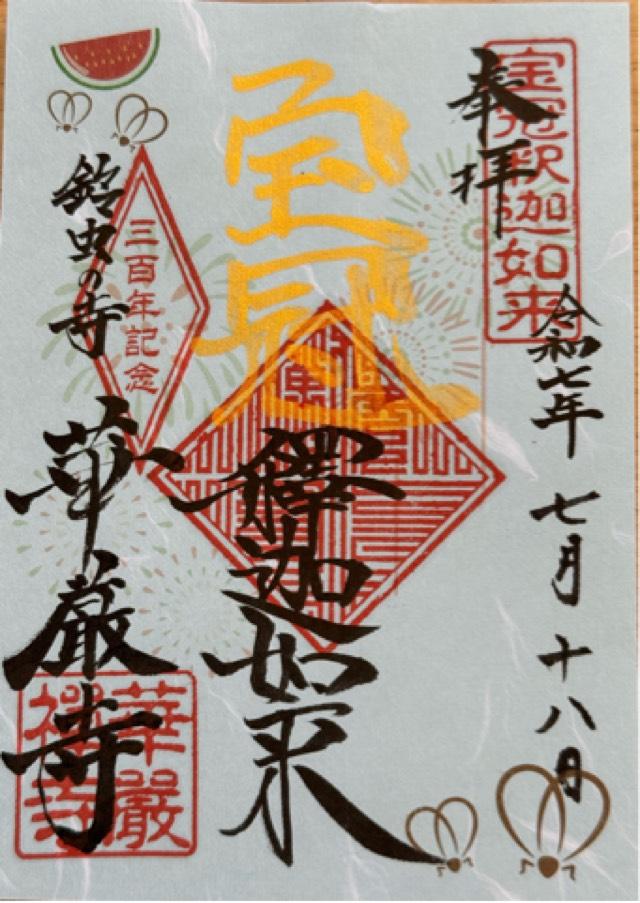 宝冠釈迦如来
奉拝
令和七年 七月 十八日
宝冠
釋迦如来
三百年記念
鈴虫の寺
華厳寺
華嚴
禅寺